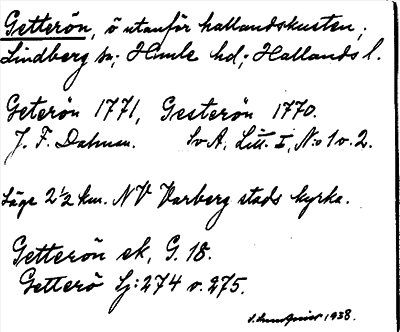 Getterön, ö utanför hallandskusten;
Lindberg sn; Himle hd; Hallands l.
Geterön 1771, Gesterön 1770.
J. F. Dahman. SvA, Litt. I, N:o 1 o. 2.
Läge 2 1/2 km. NV Varberg stads kyrka.
Getterön ek, G. 18.
Getterö Lj: 274 o. 275.
1938.